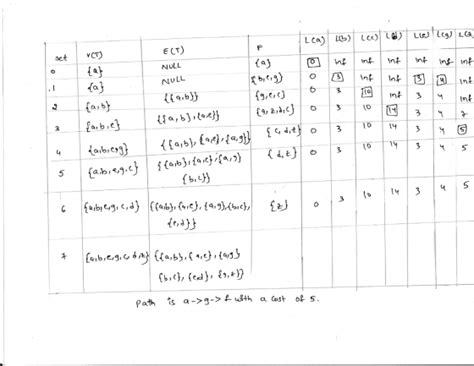 set V(T) E(T) F L(a) L(b) L(c) L(d) L(e) L(g) L(z)
0 {a} NULL {a} 0 inf inf inf inf inf inf
1 {a} NULL {b,e,g} 0 3 inf inf 3 4 inf
2 {a,b} {{a,b}} {g,e,c} 0 3 10 inf 3 4 inf
3 {a,b,e} {{a,b},{a,e}} {g,z,d,c} 0 3 10 14 3 4 7
4 {a,b,e,g} {{a,b},{a,e},{a,g}} {c,d,z} 0 3 10 14 3 4 5
5 {a,b,e,g,c} {{a,b},{a,e},{a,g} {d,z} 0 3 10 14 3 4 5
{b,c}}
6 {a,b,e,g,c,d} {{a,b},{a,e},{a,g},{b,c}, {z} 0 3 10 14 3 4 5
{e,d}}
7 {a,b,e,g,c,d,z} {{a,b},{a,e},{a,g}
{b,c},{e,d},{g,z}}
Path is a->g-> with a cost of 5.